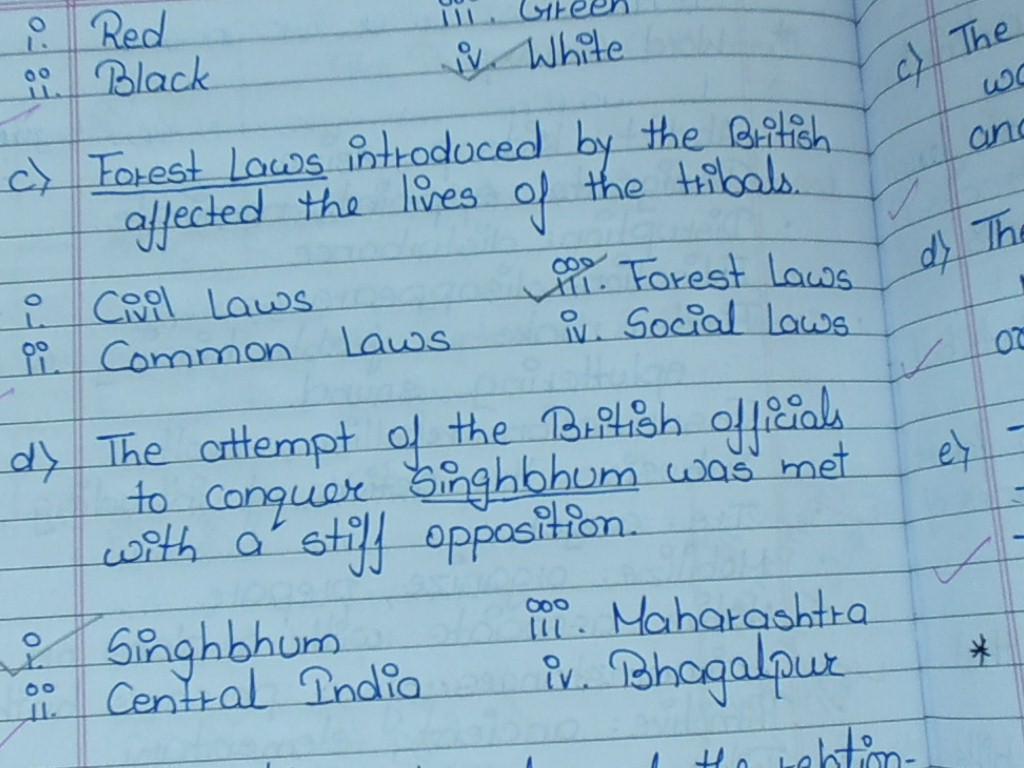 i. Red
iii. Green
ii. Black
iv. White
c) Forest Laws introduced by the British
affected the lives of the tribals.
i. Civil Laws
iii. Forest Laws
ii. Common Laws
iv. Social Laws
d) The attempt of the British officials
to conquer Singhbhum was met
with a stiff opposition.
i. Singhbhum
iii. Maharashtra
ii. Central India
iv. Bhagalpur
the
c) The
and
d) The
e)
*